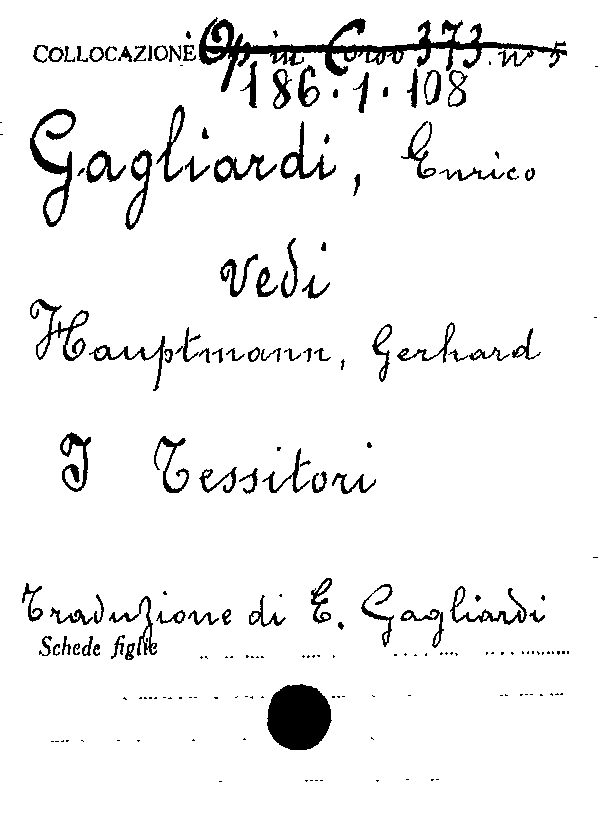 COLLOCAZIONE Op in Corso 373. n° 5
186.1.108
Gagliardi, Enrico
Vedi
Hauptmann, Gerhard
I Tessitori
Traduzione di E. Gagliardi
Schede figlie